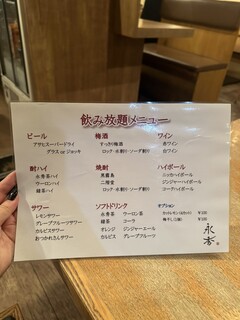 飲み放題メニュー
ビール
アサヒスーパードライ
グラス or ジョッキ
梅酒
すっきり梅酒
ロック・水割り・ソーダ割り
ワイン
赤ワイン
白ワイン
酎ハイ
永秀茶ハイ
ウーロンハイ
緑茶ハイ
焼酎
黒霧島
二階堂
ロック・水割り・ソーダ割り
ハイボール
ニッカハイボール
ジンジャーハイボール
コークハイボール
サワー
レモンサワー
グレープフルーツサワー
カルピスサワー
おつかれさんサワー
ソフトドリンク
永秀茶 ウーロン茶
緑茶 コーラ
オレンジ ジンジャーエール
カルピス グレープフルーツ
オプション